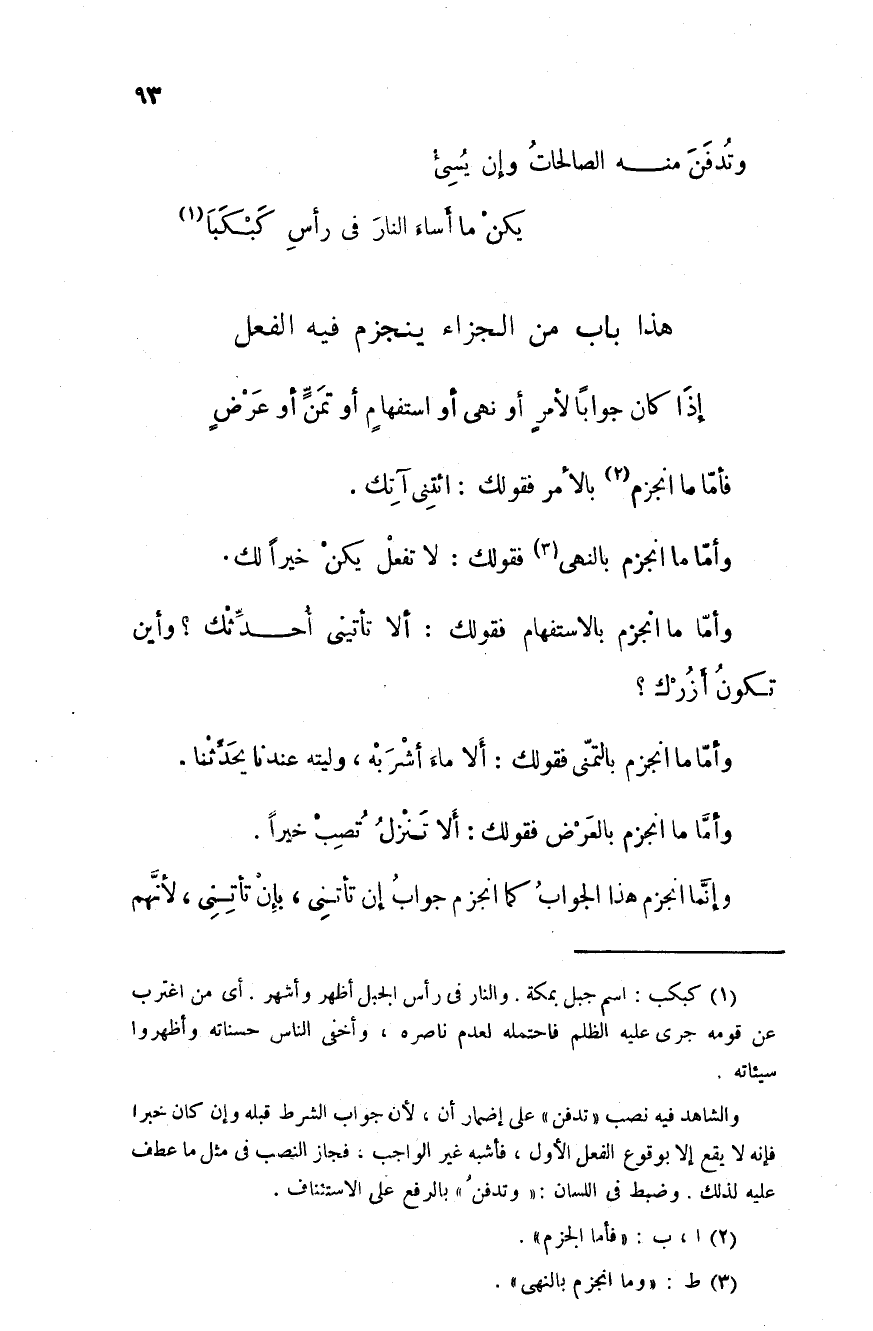 ٩٣
وتُدفَنَ منـــه الصالحاتُ وإن يُسِئْ
يكنْ ما أَساء النارَ فى رأسِ كَبْكَبَا(١)
هذا باب من الجزاء ينجزم فيه الفعل
إذَا كان جوابًا لأمرٍ أو نهى أو استفهامٍ أو تمَنٍّ أو عَرْضٍ
فأمّا ما انجزم(٢) بالأمر فقولك : ائتِنِى آتِك .
وأمّا ما انجزم بالنهى(٣) فقولك : لا تفعلْ يكنْ خيراً لك .
وأمّا ما انجزم بالاستفهام فقولك : ألا تأتينى أُحـــدِّثْك ؟ وأين
تـكونُ أَزُرْك ؟
وأمّا ما انجزم بالتمنّى فقولك : أَلا ماءَ أشْرَبْه ، وليته عندنا يحَدِّثْنا .
وأمَّا ما انجزم بالعَرْض فقولك : أَلا تَـنْزلُ تُصِبْ خيراً .
وإنَّما انجزم هذا الجوابُ كما انجزم جوابُ إن تأتـنِى ، بإِنْ تأتِـنِى ، لأنَّهم
(١) كبكب : اسم جبل بمكة . والنار فى رأس الجبل أظهر وأشهر . أى من اغترب
عن قومه جرى عليه الظلم فاحتمله لعدم ناصره ، وأخفى الناس حسناته وأظهروا
سيئاته .
والشاهد فيه نصب «تدفن» على إضمار أن ، لأن جواب الشرط قبله وإن كان خبرا
فإنه لا يقع إلا بوقوع الفعل الأول ، فأشبه غير الواجب ، فجاز النصب فى مثل ما عطف
عليه لذلك . وضبط فى اللسان : « وتدفنُ » بالرفع على الاستئناف .
(٢) ا ، ب : «فأما الجزم» .
(٣) ط : «وما انجزم بالنهى» .